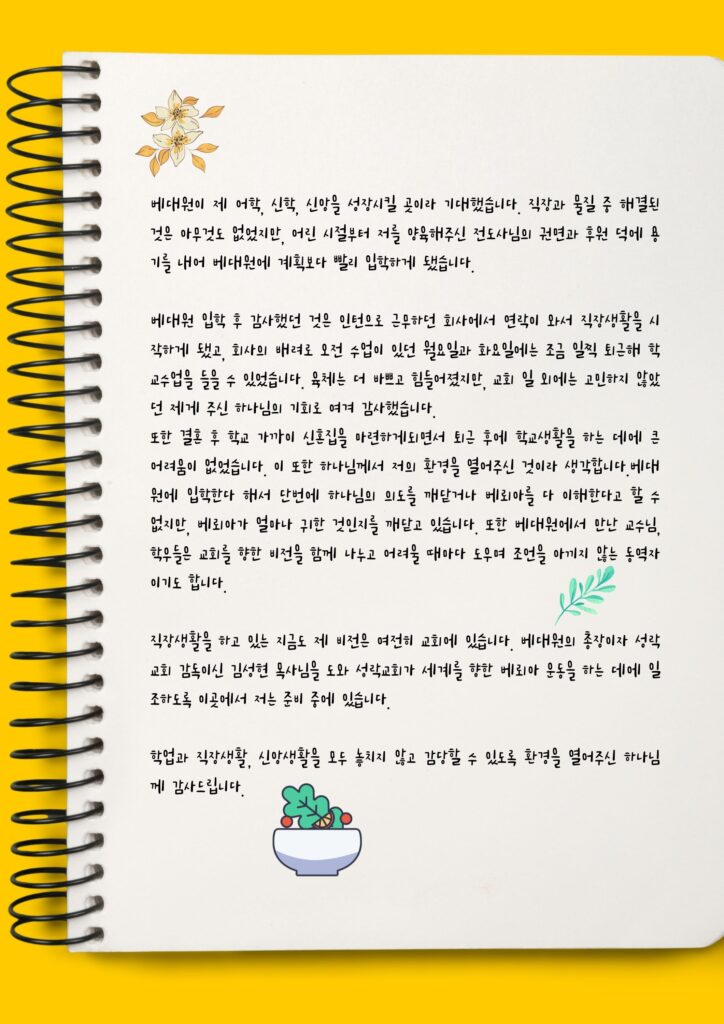 베대원이 제 어학, 신학, 신앙을 성장시킬 곳이라 기대했습니다. 직장과 물질 중 해결된
것은 아무것도 없었지만, 어린 시절부터 저를 양육해주신 전도사님의 권면과 후원 덕에 용
기를 내어 베대원에 계획보다 빨리 입학하게 됐습니다.
베대원 입학 후 감사했던 것은 인턴으로 근무하던 회사에서 연락이 와서 직장생활을 시
작하게 됐고, 회사의 배려로 오전 수업이 있던 월요일과 화요일에는 조금 일찍 퇴근해 학
교수업을 들을 수 있었습니다. 육체는 더 바쁘고 힘들어졌지만, 교회 일 외에는 고민하지 않았
던 제게 주신 하나님의 기회로 여겨 감사했습니다.
또한 결혼 후 학교 가까이 신혼집을 마련하게되면서 퇴근 후에 학교생활을 하는 데에 큰
어려움이 없었습니다. 이 또한 하나님께서 저의 환경을 열어주신 것이라 생각합니다.베대
원에 입학한다 해서 단번에 하나님의 의도를 깨닫거나 베뢰아를 다 이해한다고 할 수
없지만, 베뢰아가 얼마나 귀한 것인지를 깨닫고 있습니다. 또한 베대원에서 만난 교수님,
학우들은 교회를 향한 비전을 함께 나누고 어려울 때마다 도우며 조언을 아끼지 않는 동역자
이기도 합니다.
직장생활을 하고 있는 지금도 제 비전은 여전히 교회에 있습니다. 베대원의 총장이자 성락
교회 감독이신 김성현 목사님을 도와 성락교회가 세계를 향한 베뢰아 운동을 하는 데에 일
조하도록 이곳에서 저는 준비 중에 있습니다.
학업과 직장생활, 신앙생활을 모두 놓치지 않고 감당할 수 있도록 환경을 열어주신 하나님
께 감사드립니다.